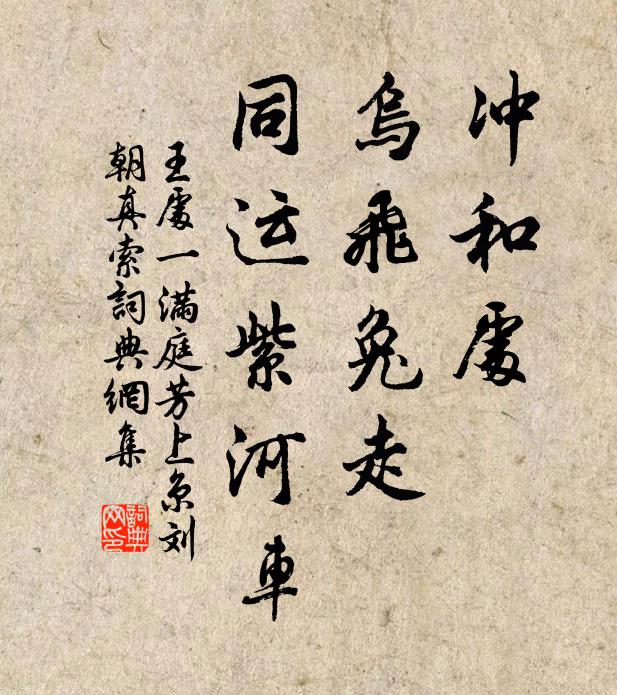 冲和處
烏飛兔走
同运紫河車
王處一满庭芳上京刘
朝真索詞典網集
詞典
网印